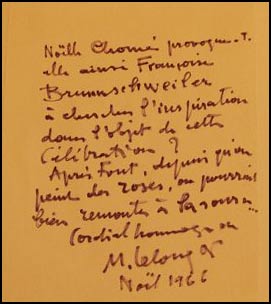 Noëlle Chomé provoque-t-
elle ainsi Françoise
Brunnschweiler
à chercher l'inspiration
dans l'objet de cette
Célébration ?
Après tout, depuis qu'on
peint des roses, on pourrait
bien remonter à la source...
Cordial hommage
M. Lelong
Noël 1966